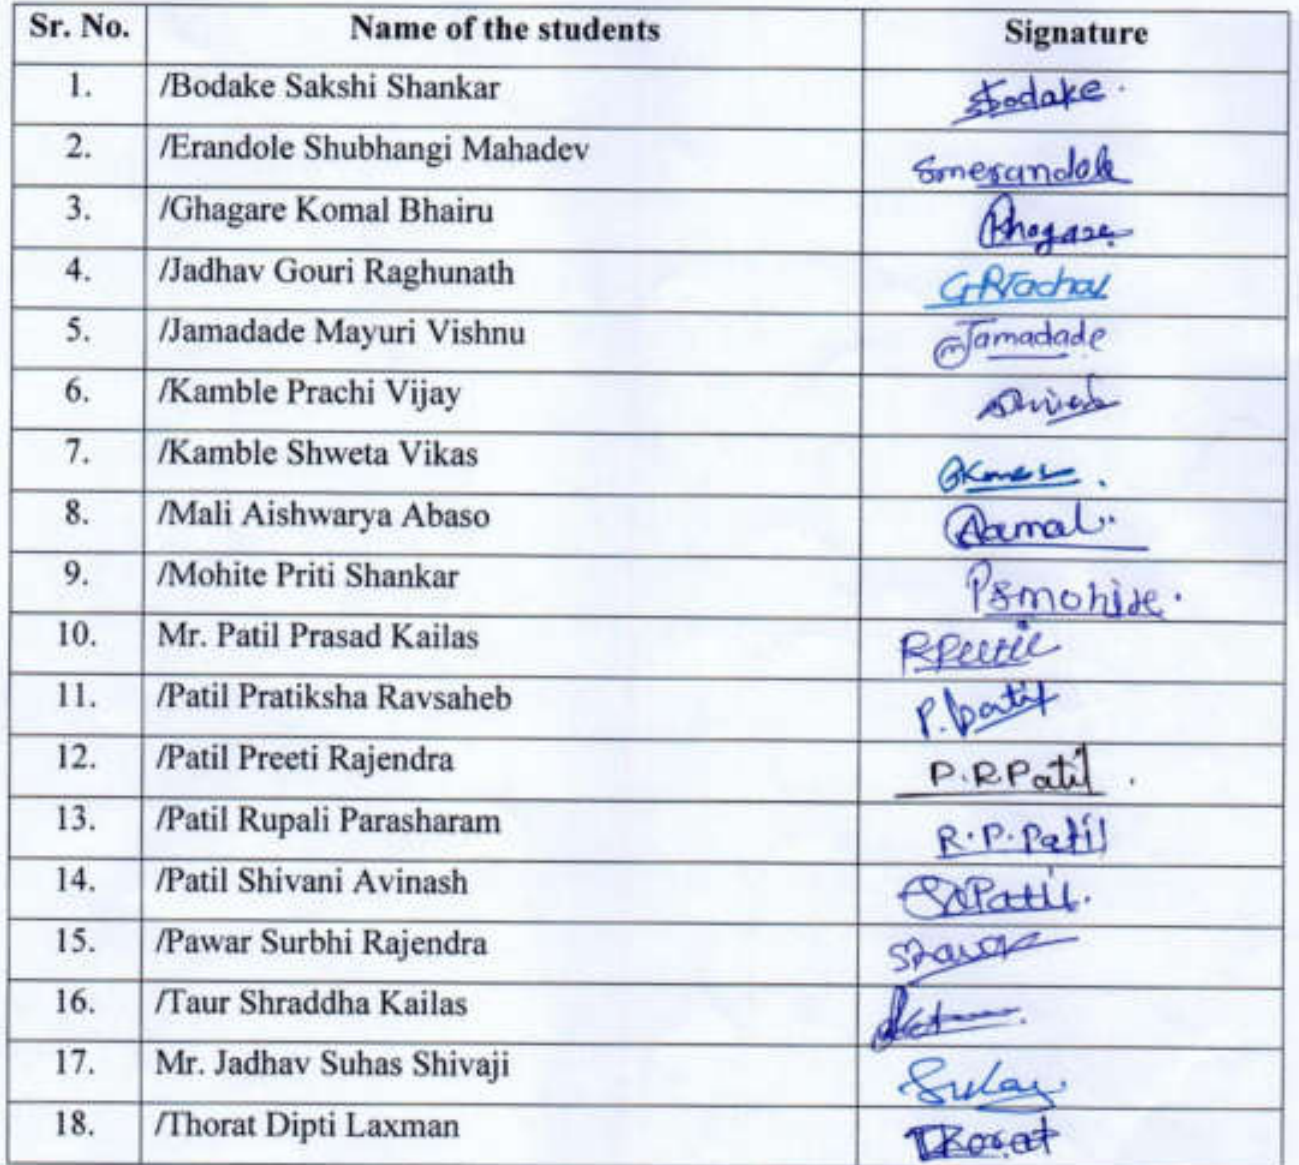 Sr. No. Name of the students Signature
1. /Bodake Sakshi Shankar Bodake.
2. /Erandole Shubhangi Mahadev Smerandole
3. /Ghagare Komal Bhairu
4. /Jadhav Gouri Raghunath GRJadhav
5. /Jamadade Mayuri Vishnu Jamadade
6. /Kamble Prachi Vijay
7. /Kamble Shweta Vikas
8. /Mali Aishwarya Abaso
9. /Mohite Priti Shankar PSmohite.
10. Mr. Patil Prasad Kailas
11. /Patil Pratiksha Ravsaheb P.patil
12. /Patil Preeti Rajendra P.R.Patil .
13. /Patil Rupali Parasharam R.P.Patil
14. /Patil Shivani Avinash SAPatil.
15. /Pawar Surbhi Rajendra
16. /Taur Shraddha Kailas
17. Mr. Jadhav Suhas Shivaji
18. /Thorat Dipti Laxman